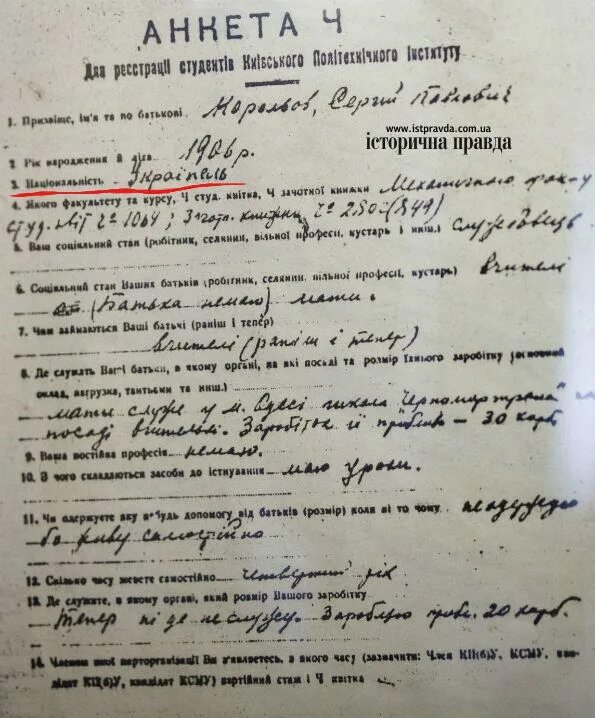 АНКЕТА Ч
Для реєстрації студентів Київського Політехнічного Інституту
1. Призвіще, ім'я та по батькові Корольов, Сергій Павлович
www.istpravda.com.ua
історична правда
2. Рік народження й літа 1906 р.
3. Національність Українець
4. Якого факультету та курсу, Ч студ. квітка, Ч зачотної книжки Механичного фак-у
студ. квіт Ч° 1064; Ч°
5. Ваш соціяльний стан (робітник, селянин, вільної професії, кустарь і инш.) службовець
6. Соціяльний стан Ваших батьків (робітник, селянин, вільної професії, кустарь) вчителі
(Батька немаю) мати.
7. Чим займаються Ваші батьчі (раніш і тепер)
вчителі (раніш і тепер)
8. Де служать Ваші батьки, в якому органі, на які посаді та розмір їхнього заробітку (основний
оклад, нагрузка, тантьєми та инш.)
мати служе у м. Одесі школа
посаді вчительки. Заробіток її приблизно - 30 карб
9. Ваша постійна професія немаю.
10. З чого складаються засоби до існування маю уроки.
11. Чи одержуєте яку небудь допомогу від батьків (розмір) коли ні то чому неодержую
бо живу самостійно
12. Скілько часу живете самостійно четвертий рік
13. Де служите, в якому органі, який розмір Вашого заробітку
тепер ні де не служу. Заробляю 20 карб.
14. Членом якої парторганізації Ви з'являєтесь, з якого часу (зазначити: Член КП(б)У, КСМУ, кан-
дідат КП(б)У, кандідат КСМУ) партійний стаж і Ч квітка